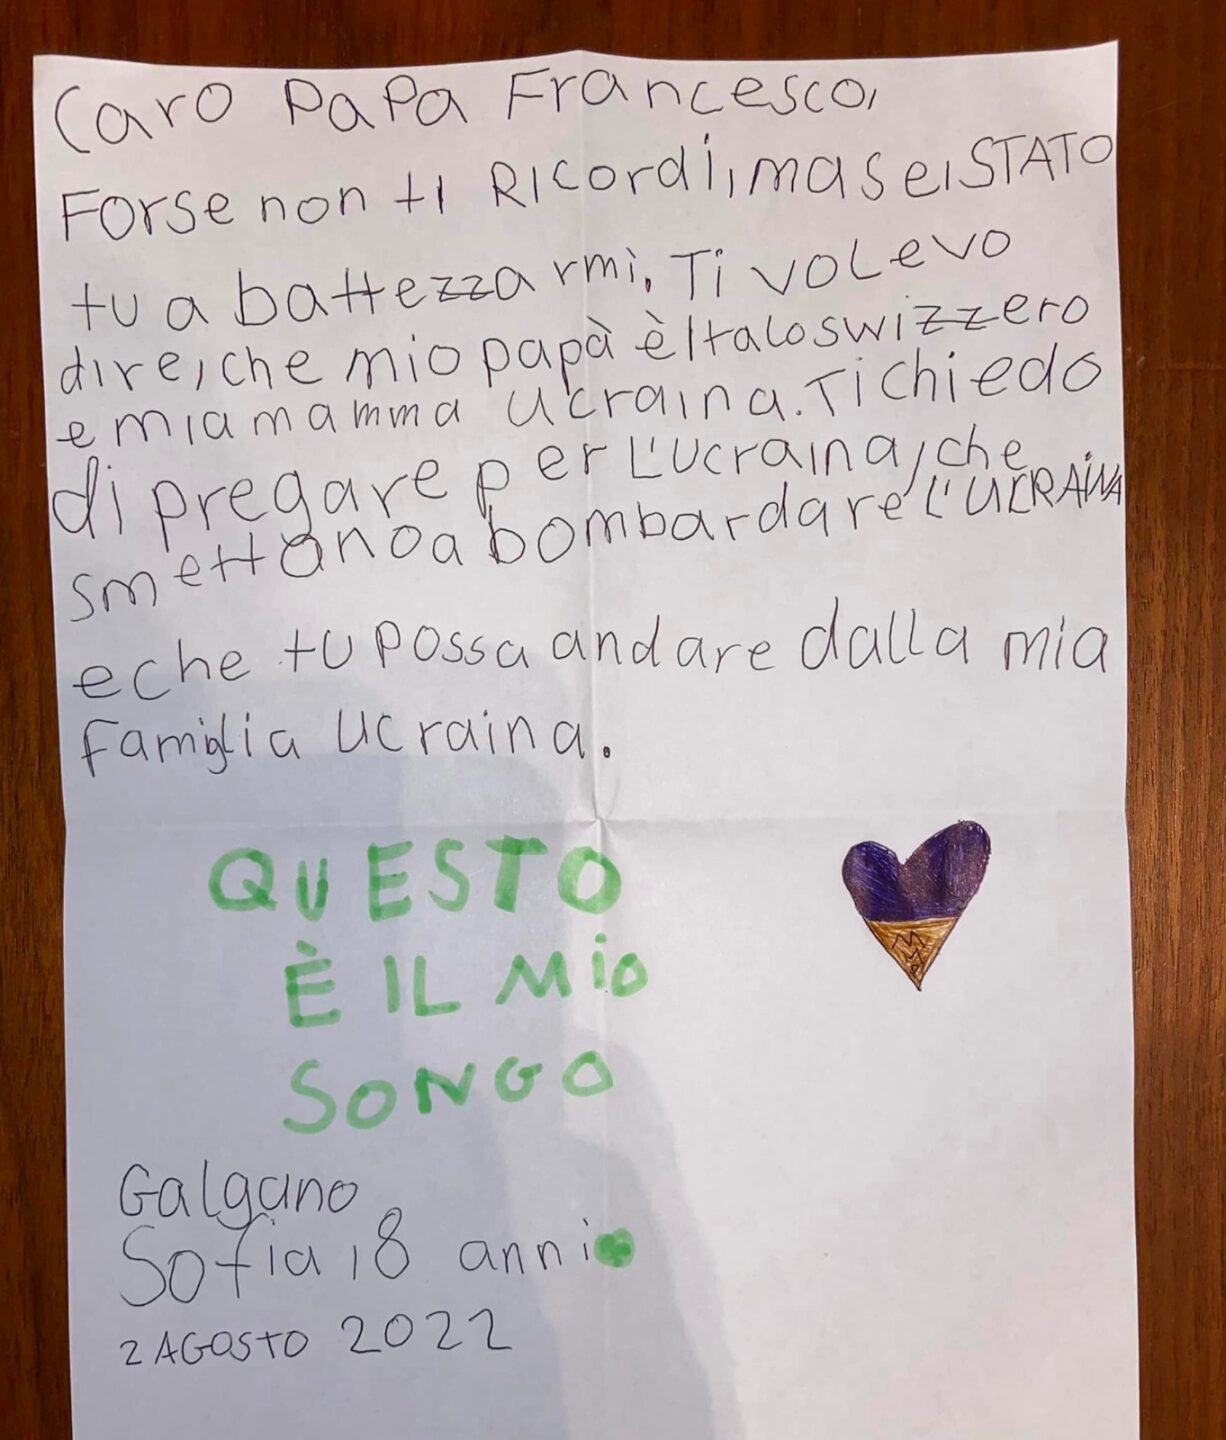 Caro Papa Francesco,
Forse non ti Ricordi, ma sei STATO
tu a battezzarmi. Ti volevo
dire, che mio papà è Italoswizzero
e mia mamma Ucraina. Ti chiedo
di pregare per L'Ucraina, che
smettano a bombardare L'UCRAINA
e che tu possa andare dalla mia
Famiglia Ucraina.
QUESTO
È IL Mio
SONGO
Galgano
Sofia, 8 anni
2 AGOSTO 2022